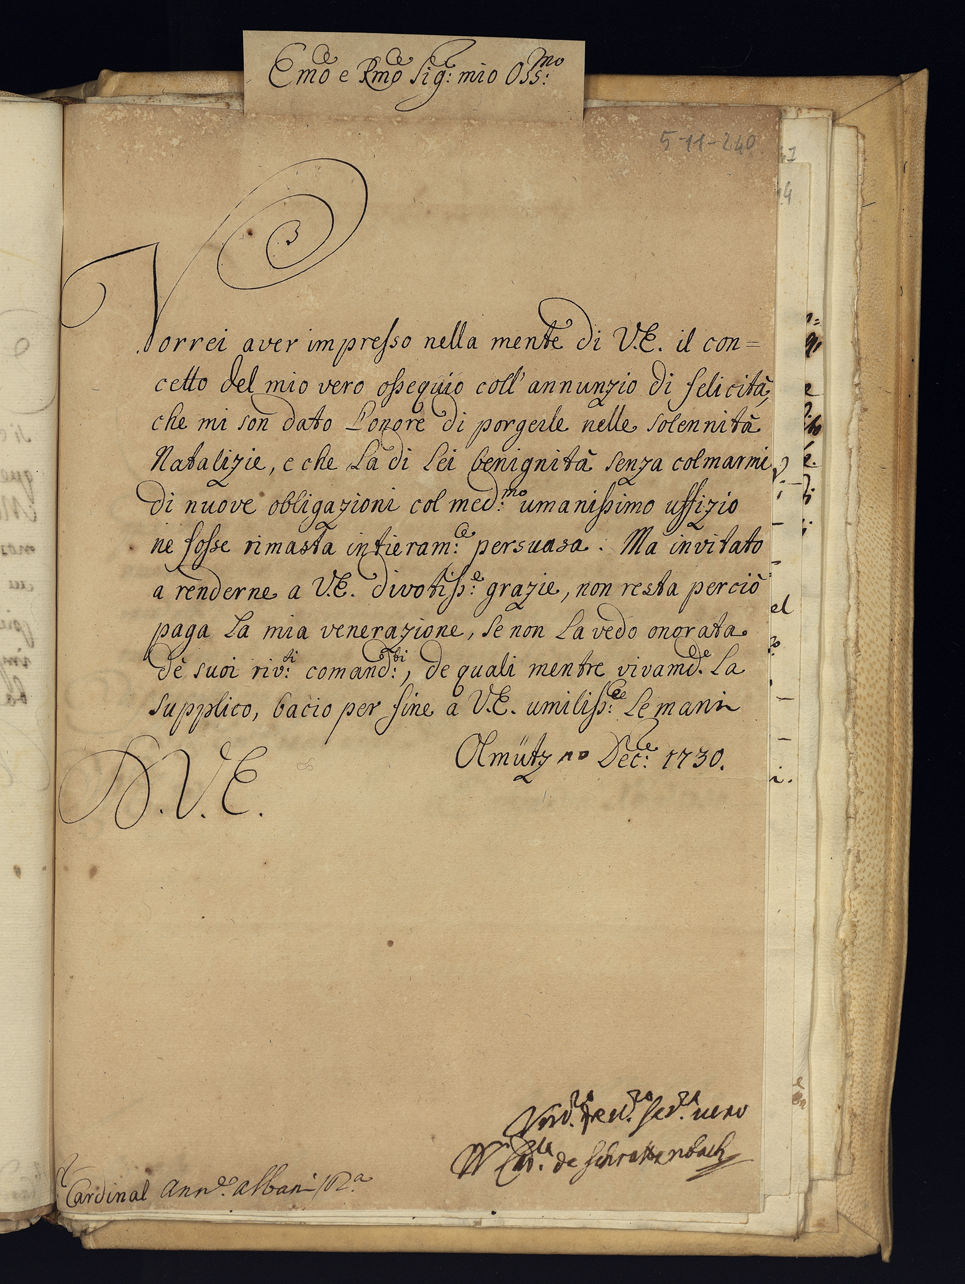 Emo e Rmo Sig: mio Oss:mo
5-11-240
Vorrei aver impresso nella mente di V.E. il con=
cetto del mio vero ossequio coll'annunzio di felicità,
che mi son dato L'onore di porgerle nelle solennità
Natalizie, e che La di Lei benignità senza colmarmi
di nuove obbligazioni col med:mo umanissimo uffizio
ne fosse rimasta intieram:e persuasa. Ma invitato
a renderne a V.E. divotiss:e grazie, non resta perciò
paga La mia venerazione, se non La vedo onorata
dè suoi riv:ti comand:ti, de quali mentre vivamd:e La
supplico, bacio per fine a V.E. umiliss:e Le mani
Olmütz Dec:e 1730.
D.V.E.
vero
W Card.le de Schrattenbach
Cardinal Ann.e Albani